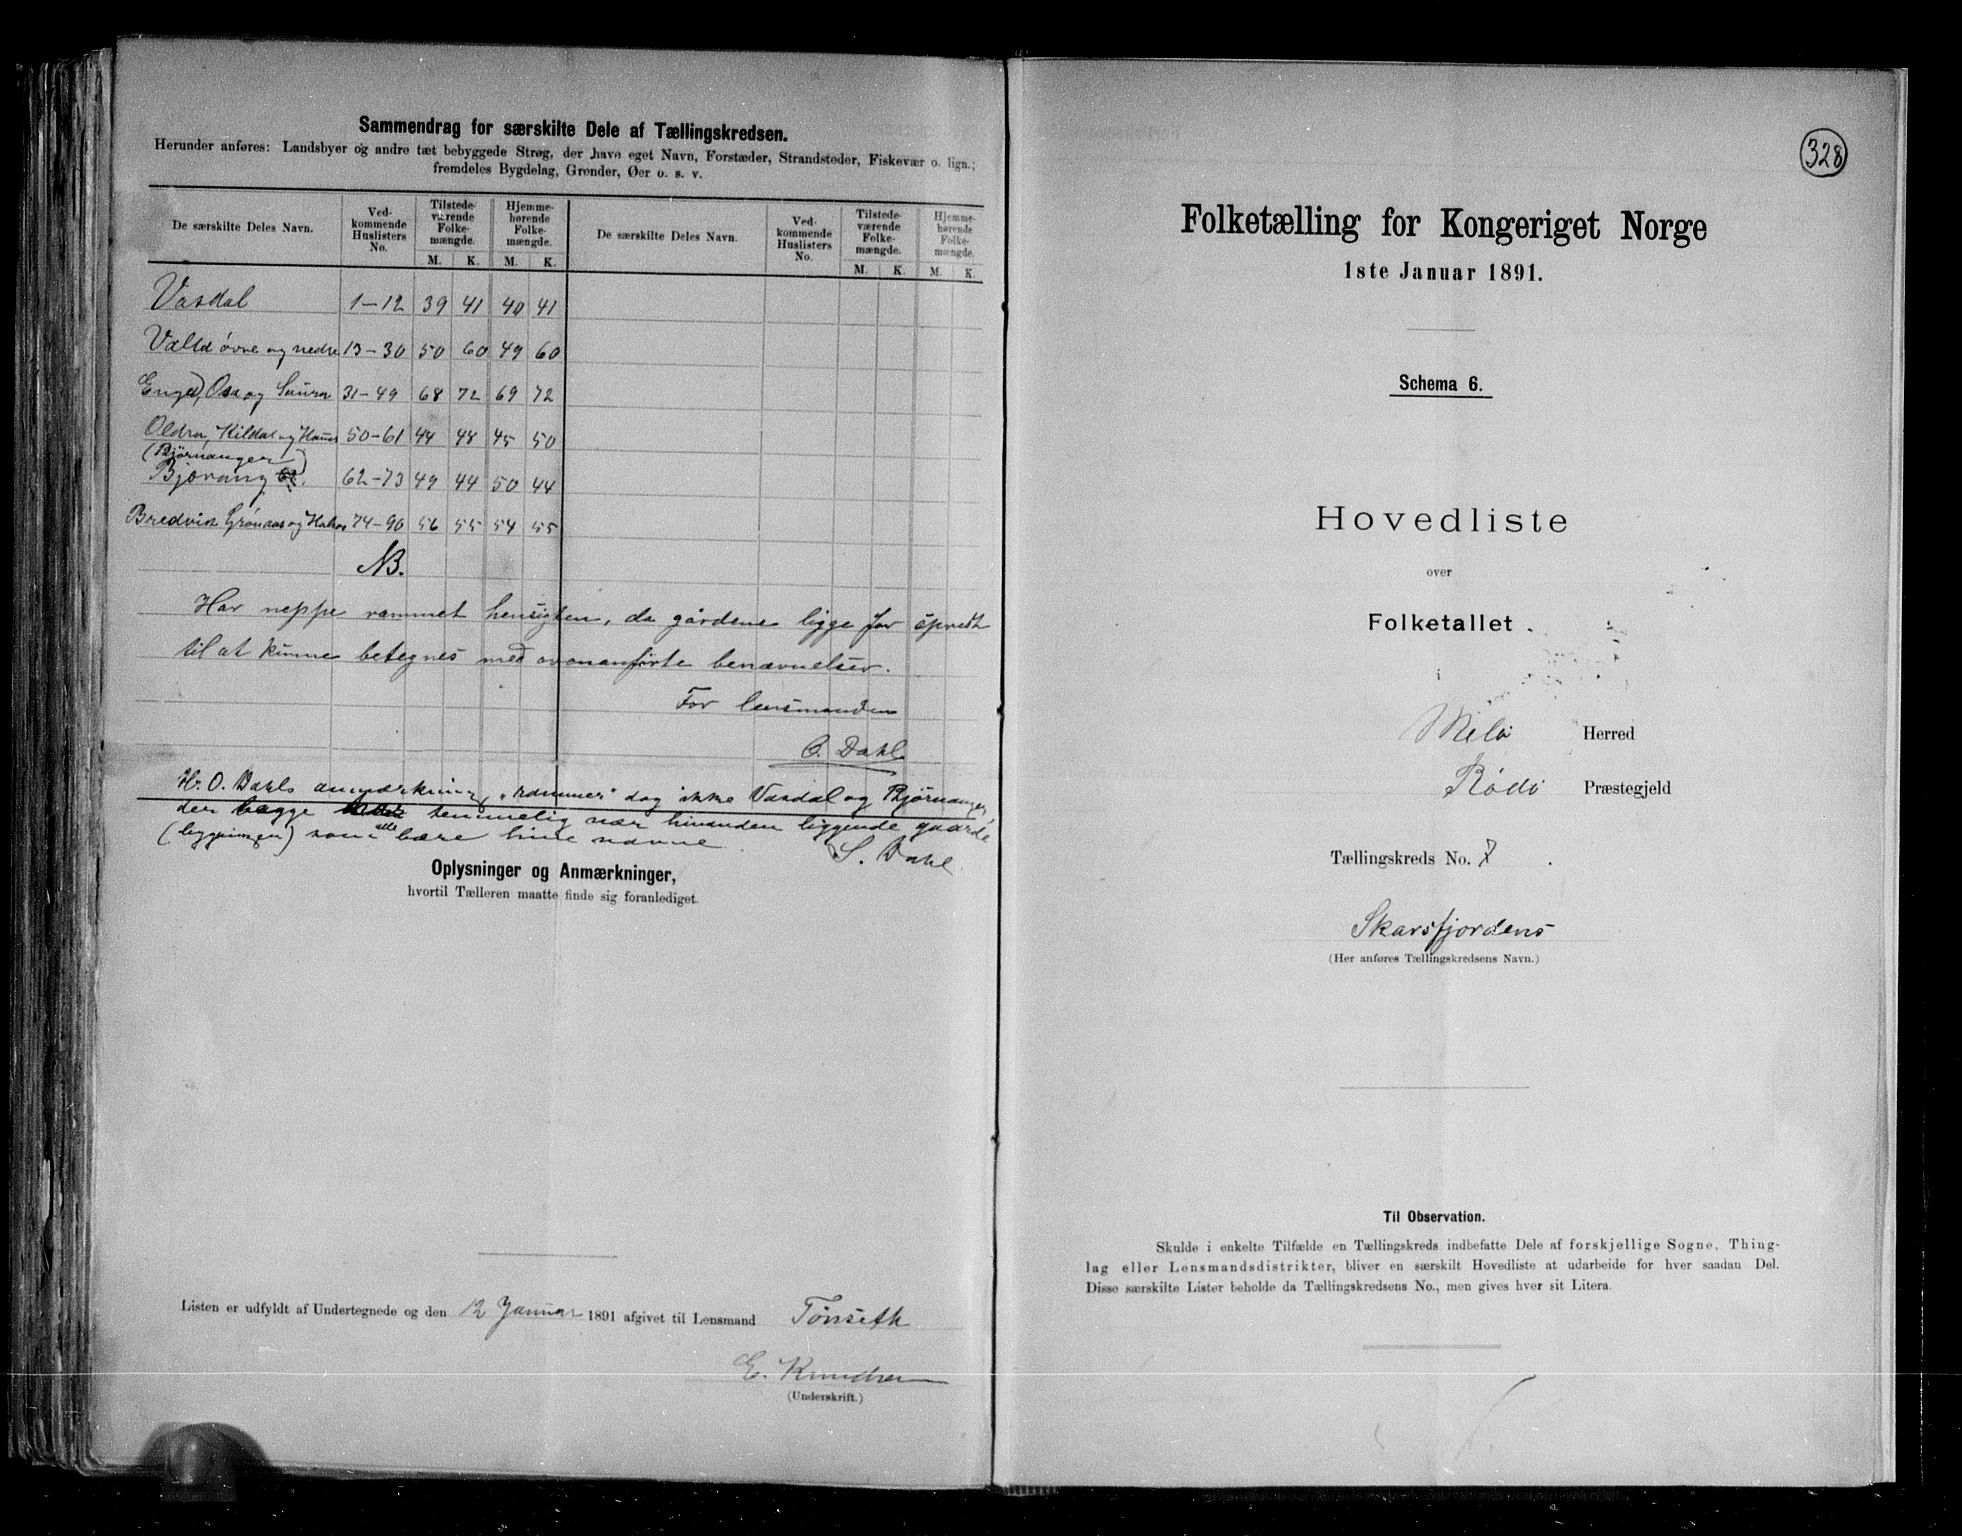 Sammendrag for særskilte Dele af Tællingskredsen.
Herunder anføres: Landsbyer og andre tæt bebyggede Strøg, der have eget Navn, Forstæder, Strandsteder, Fiskevær o. lign.;
fremdeles Bygdelag, Grender, Øer o. s. v.
De særskilte Deles Navn. Ved-kommende Huslisters No. Tilstede-værende Folke-mængde. Hjemme-hørende Folke-mængde. De særskilte Deles Navn. Ved-kommende Huslisters No. Tilstede-værende Folke-mængde. Hjemme-hørende Folke-mængde.
M. K. M. K. M. K. M. K.
Vasdal 1-12 39 41 40 41
øvre og nedre 13-30 50 60 49 60
Osa og 31-49 68 72 69 72
Oldra, Kildal og 50-61 44 48 45 50
(Bjørnanger)
Bjærang 62-73 49 44 50 44
Bredvik Grønaas og 74-90 56 55 54 55
NB.
Har neppe rammet hensigten, da gårdene ligge for spredt
til at kunne betegnes med ovenanførte benævnelser.
For lensmanden
O. Dahl
Hr. O. Dahls anmærkning "rammer" dog ikke Vasdal og Bjørnanger,
der begge temmelig nær hinanden liggende gaarde
(bygninger) som alle bære hine navne.
S. Dahl
Oplysninger og Anmærkninger,
hvortil Tælleren maatte finde sig foranlediget.
Listen er udfyldt af Undertegnede og den 12 Januar 1891 afgivet til Lensmand Tønseth
E. Knudsen
(Underskrift.)
328
Folketælling for Kongeriget Norge
1ste Januar 1891.
Schema 6.
Hovedliste
over
Folketallet
Melø Herred
Rødø Præstegjeld
Tællingskreds No. 7.
Skarsfjordens
(Her anføres Tællingskredsens Navn.)
Til Observation.
Skulde i enkelte Tilfælde en Tællingskreds indbefatte Dele af forskjellige Sogne, Thing-
lag eller Lensmandsdistrikter, bliver en særskilt Hovedliste at udarbeide for hver saadan Del.
Disse særskilte Lister beholde da Tællingskredsens No., men gives hver sit Litera.